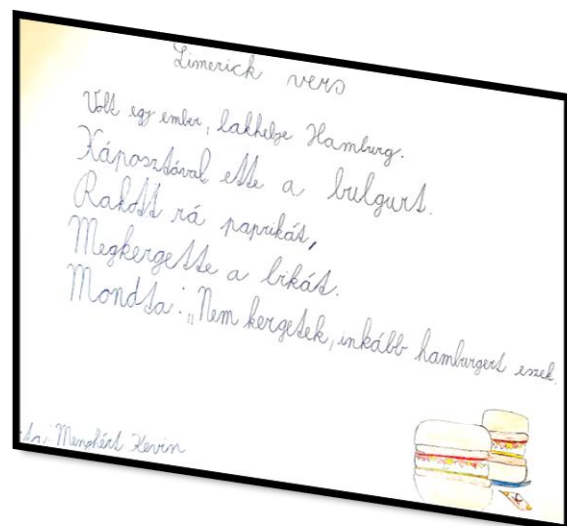 Limerick vers
Volt egy ember, lakhelye Hamburg.
Káposztával ette a bulgurt.
Rakott rá paprikát,
Megkergette a bikát.
Mondta: „Nem kergetek, inkább hamburgert eszek.
Kevin